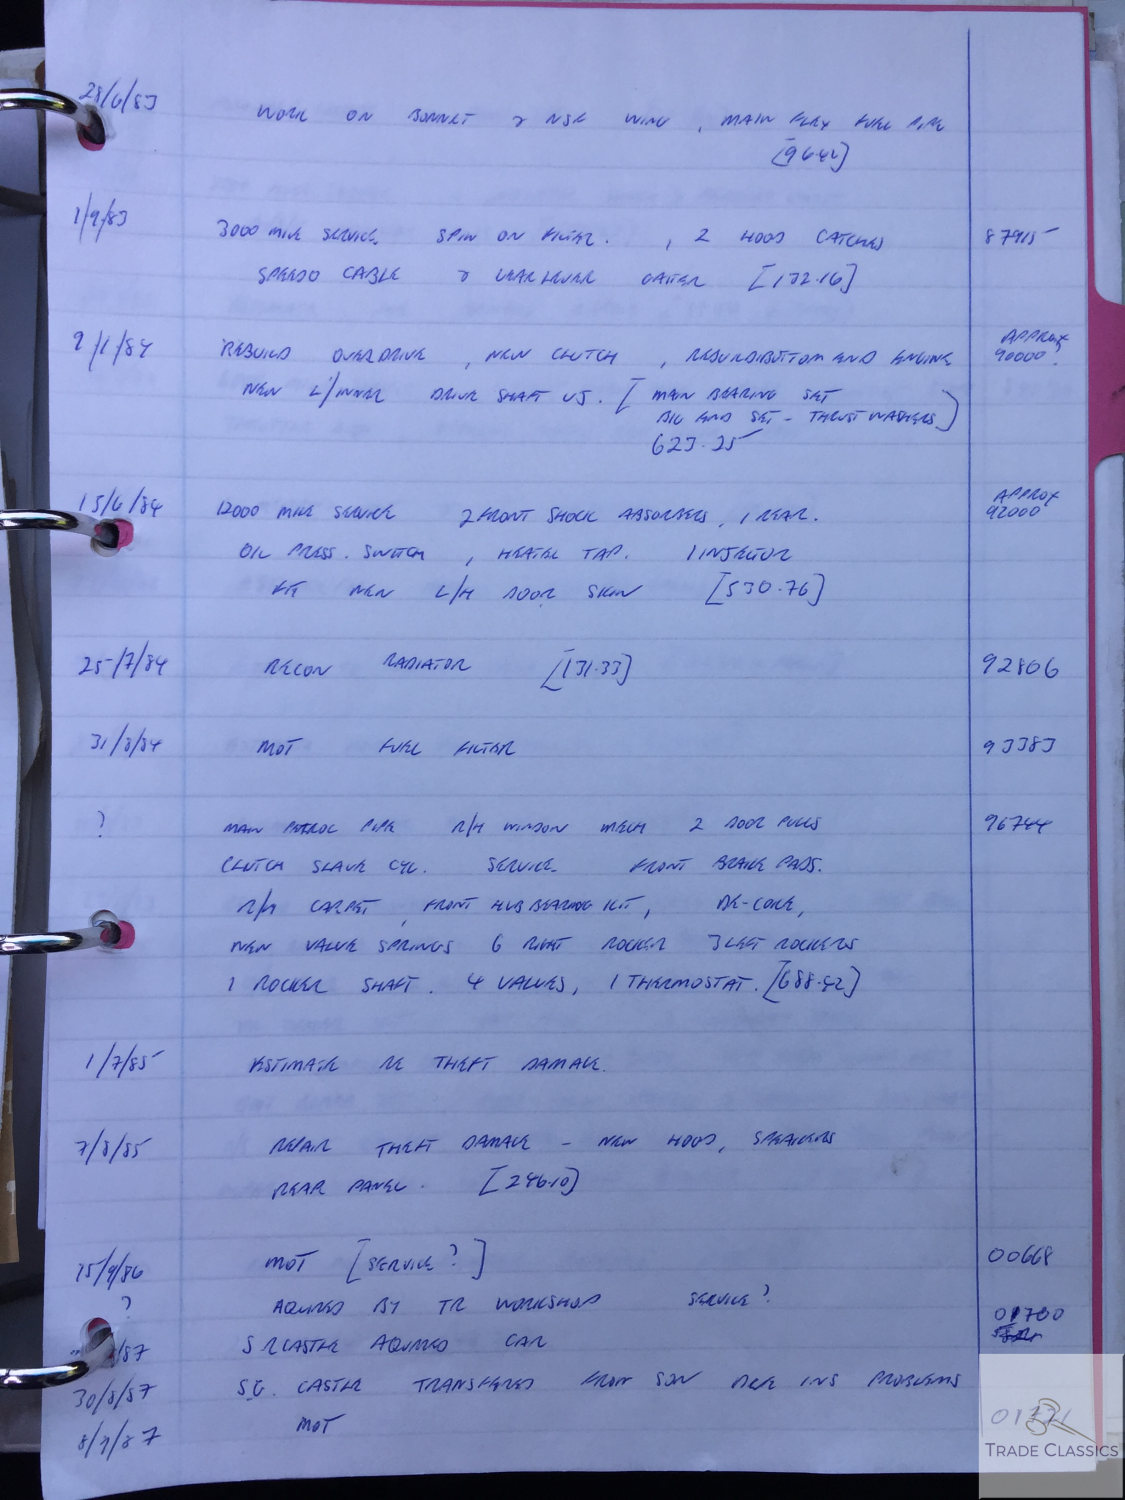 28/6/83
WORK ON BONNET & NSF WING, MAIN FLEX FUEL PIPE
[96.42]
1/9/83 3000 MILE SERVICE. SPIN ON FILTER. , 2 HOOD CATCHES 87915
SPEEDO CABLE & GEARLEVER GAITER [132.16]
9/1/84 REBUILD OVERDRIVE, NEW CLUTCH, REBUILD BOTTOM END ENGINE APPROX 90000
NEW L/INNER DRIVE SHAFT UJ. [MAIN BEARING SET
BIG END SET - THRUST WASHERS]
623.25
15/6/84 12000 MILE SERVICE 2 FRONT SHOCK ABSORBERS, 1 REAR. APPROX 92000
OIL PRESS. SWITCH, HEATER TAP. 1 INJECTOR
FIT NEW L/H DOOR SKIN [530.76]
25/7/84 RECON RADIATOR [131.33] 92806
31/8/84 MOT FUEL FILTER 93383
? MAIN PETROL PIPE R/H WINDOW MECH 2 DOOR PULLS 96744
CLUTCH SLAVE CYL. SERVICE. FRONT BRAKE PADS.
R/H CARPET, FRONT HUB BEARING KIT, DE-COKE,
NEW VALVE SPRINGS 6 RIGHT ROCKER 3 LEFT ROCKERS
1 ROCKER SHAFT. 4 VALVES, 1 THERMOSTAT. [688.42]
1/7/85 ESTIMATE RE THEFT DAMAGE.
7/8/85 REPAIR THEFT DAMAGE - NEW HOOD, SPEAKERS
REAR PANEL. [246.10]
15/9/86 MOT [SERVICE?] 00668
? AQUIRED BY TR WORKSHOP SERVICE? 01700
/87 S R CASTER AQUIRED CAR
30/8/87 S.G. CASTER TRANSFERED FROM SON INS PROBLEMS
8/9/87 MOT
TRADE CLASSICS